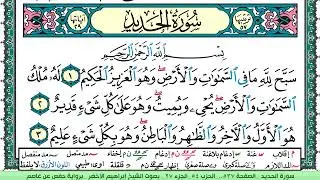 سُورَةُ الحَدِيدِ
بِسْمِ ٱللَّهِ ٱلرَّحْمَٰنِ ٱلرَّحِيمِ
سَبَّحَ لِلَّهِ مَا فِي ٱلسَّمَٰوَٰتِ وَٱلْأَرْضِ وَهُوَ ٱلْعَزِيزُ ٱلْحَكِيمُ ١ لَهُۥ مُلْكُ
ٱلسَّمَٰوَٰتِ وَٱلْأَرْضِ يُحْيِۦ وَيُمِيتُ وَهُوَ عَلَىٰ كُلِّ شَىْءٍ قَدِيرٌ ٢
هُوَ ٱلْأَوَّلُ وَٱلْءَاخِرُ وَٱلظَّٰهِرُ وَٱلْبَاطِنُ وَهُوَ بِكُلِّ شَىْءٍ عَلِيمٌ ٣
سورة الحديد الصفحة ٥٣٧ الجزء ٢٧ بصوت الشيخ إبراهيم الأخضر برواية حفص عن عاصم